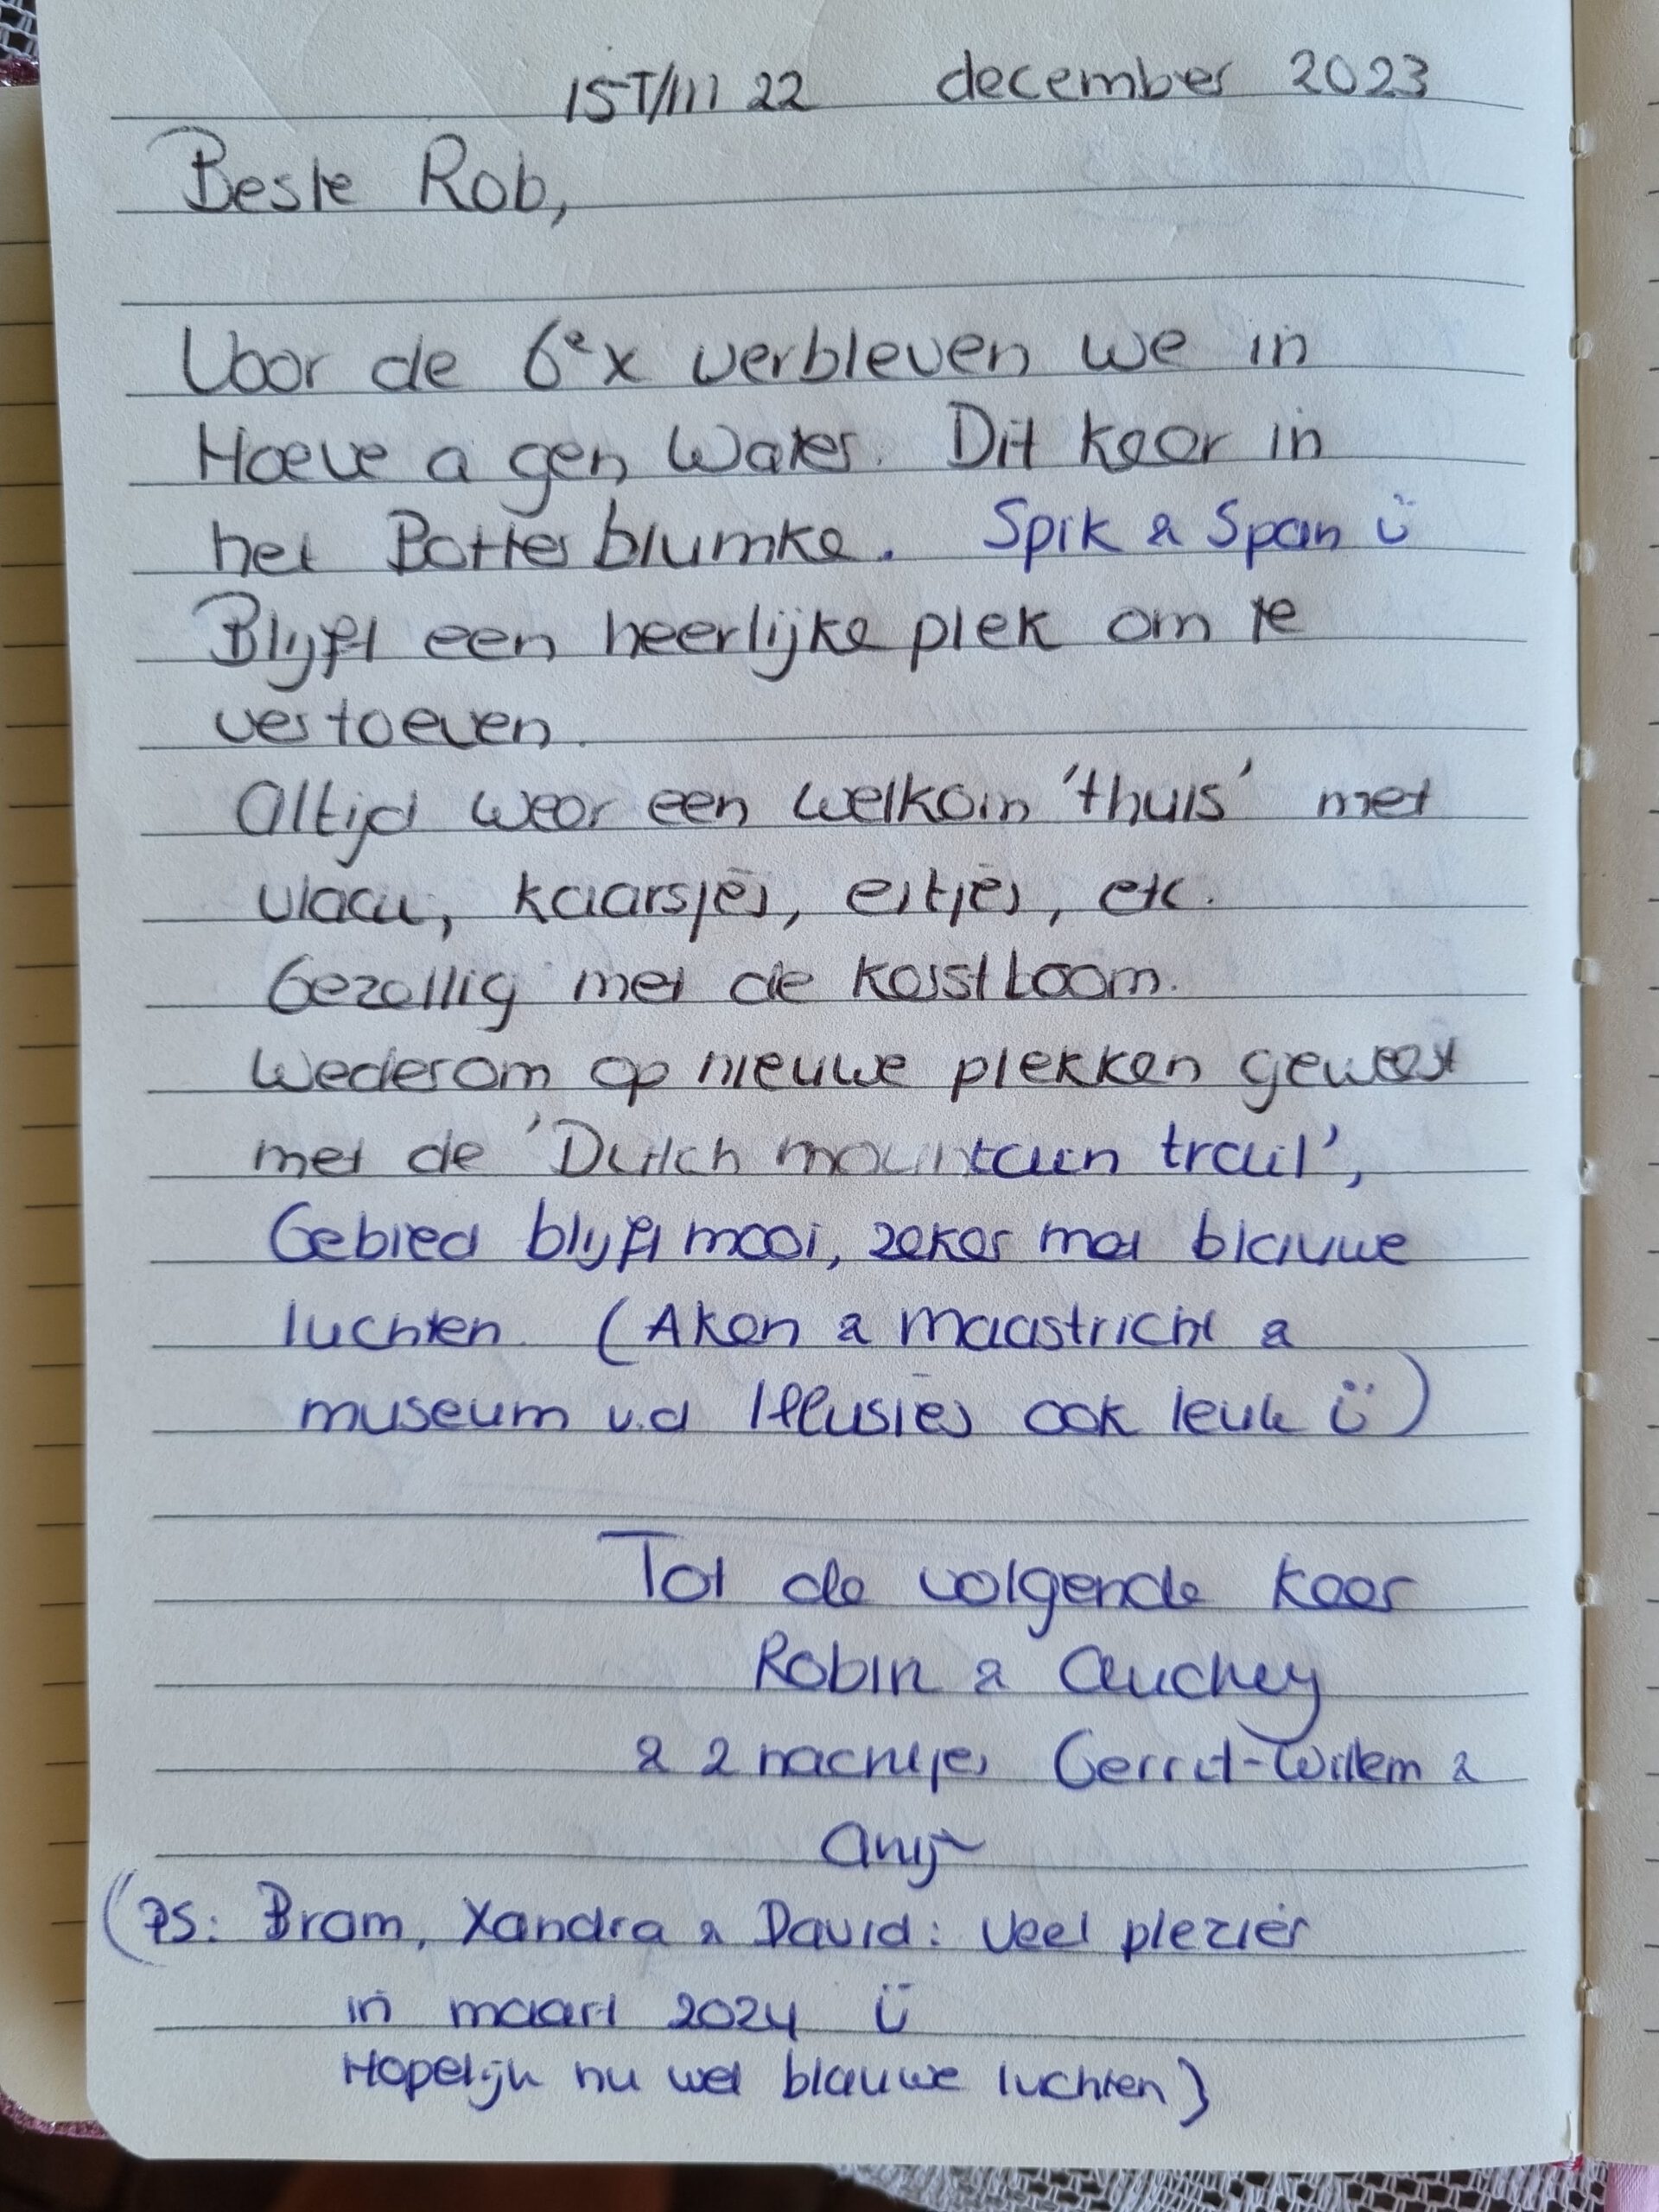 15 T/m 22 december 2023
Beste Rob,
Voor de 6e x verbleven we in
Hoeve a gen Water. Dit keer in
het Botterblumke. Spik & Span ü
Blijft een heerlijke plek om te
vertoeven.
Altijd weer een welkom 'thuis' met
vlaai, kaarsjes, eitjes, etc.
Gezellig met de kerstboom.
Wederom op nieuwe plekken geweest
met de 'Dutch mountain trail',
Gebied blijft mooi, zeker met blauwe
luchten. (Aken & Maastricht &
museum v.d Illusies ook leuk ü)
Tot de volgende keer
Robin &
& 2 nachtjes Gerrit-Willem &
(PS: Bram, Xandra & David: veel plezier
in maart 2024 ü
Hopelijk nu wel blauwe luchten)